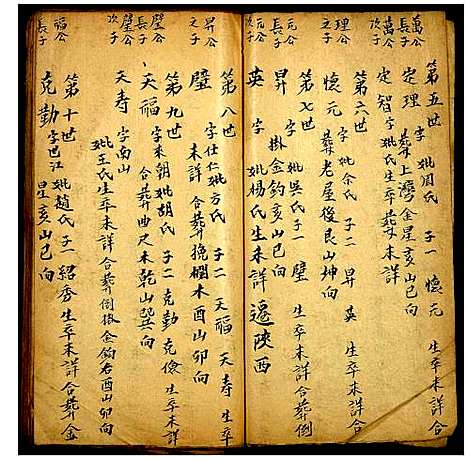 萬公長子
萬公次子
第五世
定理 字 妣周氏 子一 懷元 生卒未詳合
葬上灣金星亥山巳向
定智 字 妣氏生卒葬未詳
理公之子
第六世
懷元 字 妣余氏 子二 昇 英 生卒未詳合
葬老屋後艮山坤向
元公長子
元公次子
第七世
昇 字 妣吳氏 子一 璧 生卒未詳合葬倒
掛金鈎亥山巳向
英 字 妣楊氏 生未詳 遷陝西
昇公之子
第八世
璧 字仕仁 妣方氏 子二 天福 天寿 生卒
未詳 合葬挽欄木酉山卯向
璧公長子
璧公次子
第九世
天福 字來朝 妣胡氏 子二 克勤 克儉 生卒未詳
合葬曲尺未乾山巽向
天寿 字南山
妣王氏生卒未詳合葬倒掛金鈎右酉山卯向
福公長子
第十世
克勤 字巴江 妣趙氏 子一 紹秀 生卒未詳合葬金
星亥山巳向